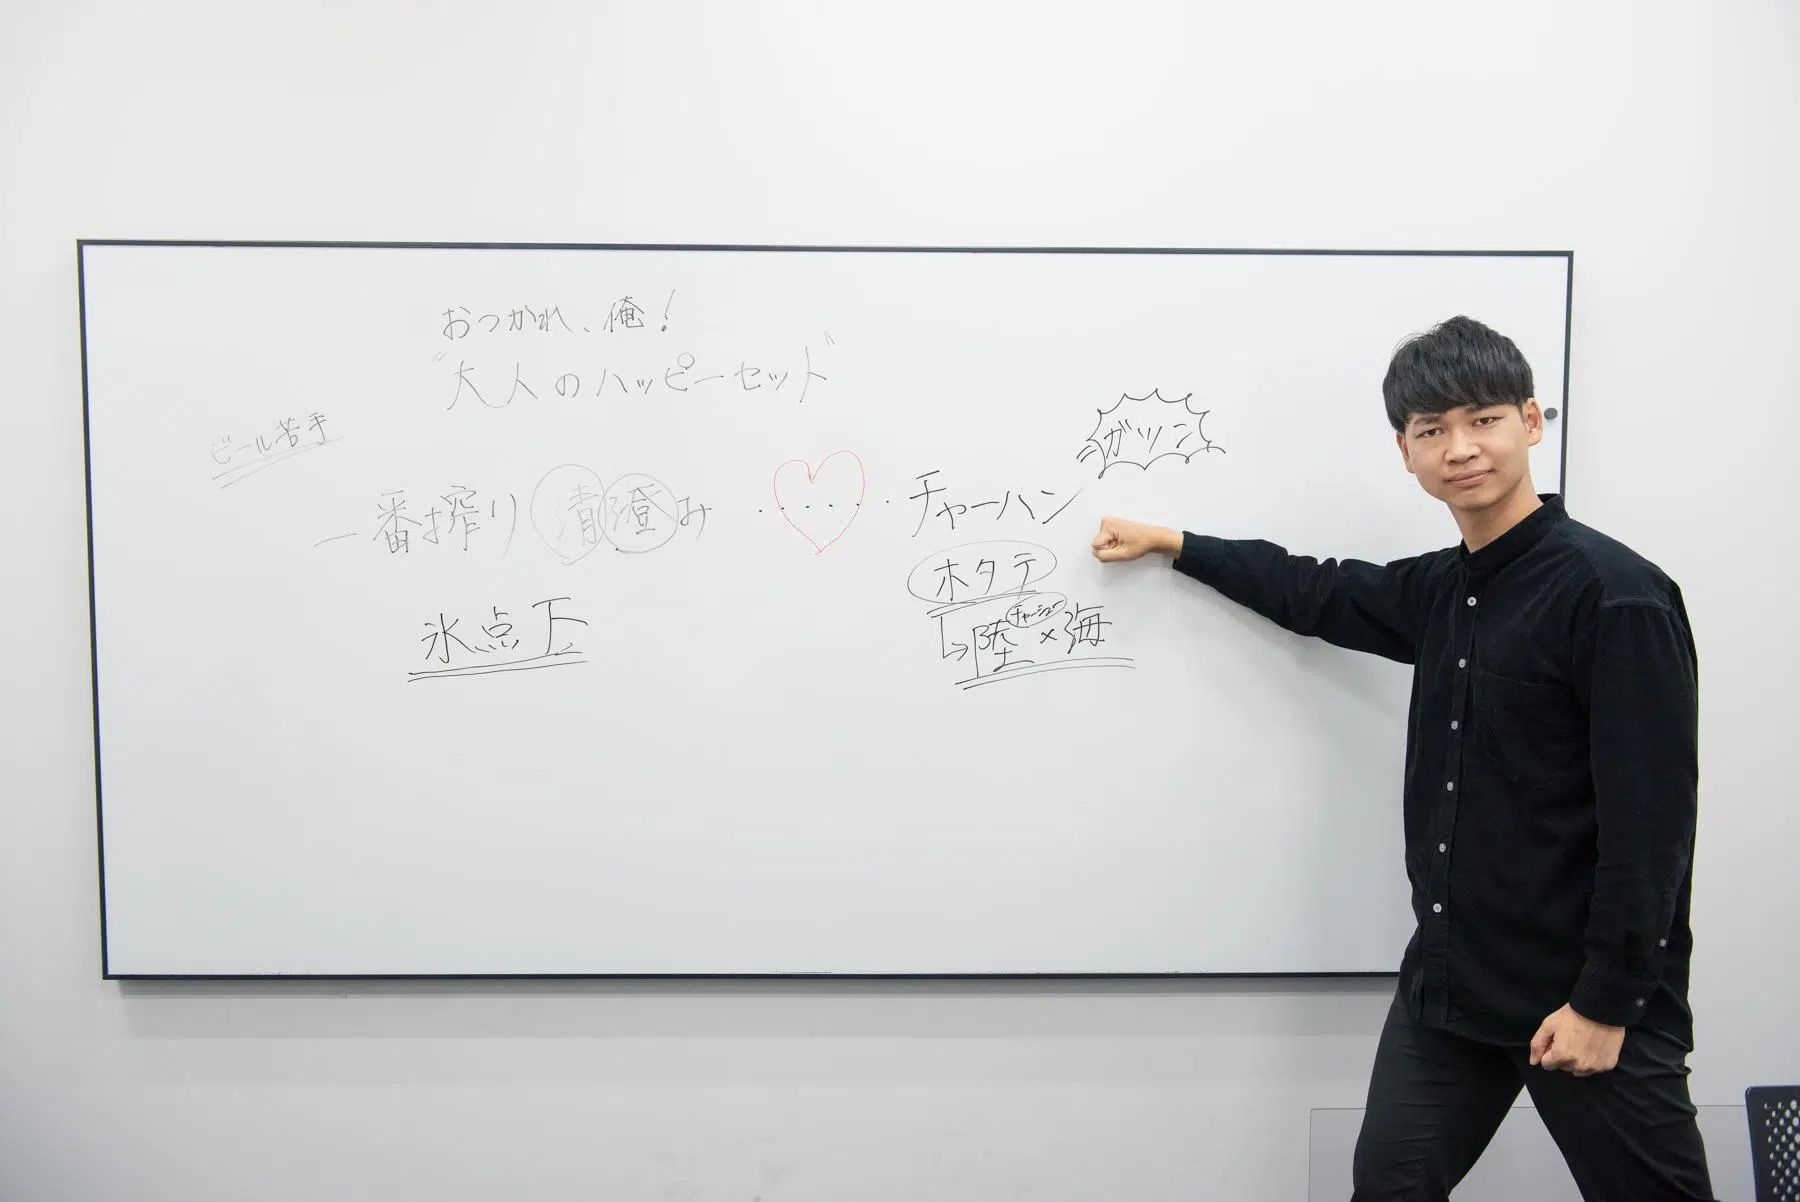 おつかれ、俺!
"大人のハッピーセット"
ビール苦手
一番搾り 清澄み ・・・・・・・チャーハン
ガツン
氷点下
ホタテ
チャーシュー
↳陸×海